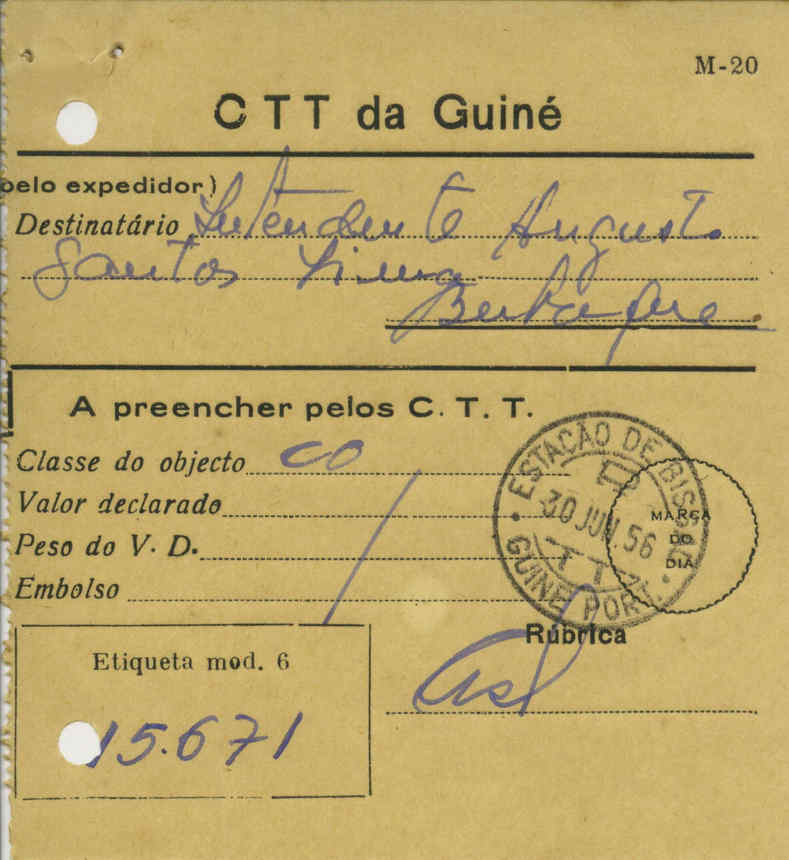 M-20
CTT da Guiné
pelo expedidor)
Destinatário Intendente Augusto
Santos Lima
Bubaque
A preencher pelos C. T. T.
Classe do objecto co
Valor declarado
Peso do V. D.
Embolso
ESTAÇÃO DE BISSAU
30 JUN 56
GUINÉ PORT.
MARCA
DO
DIA
Rúbrica
Etiqueta mod. 6
15.671